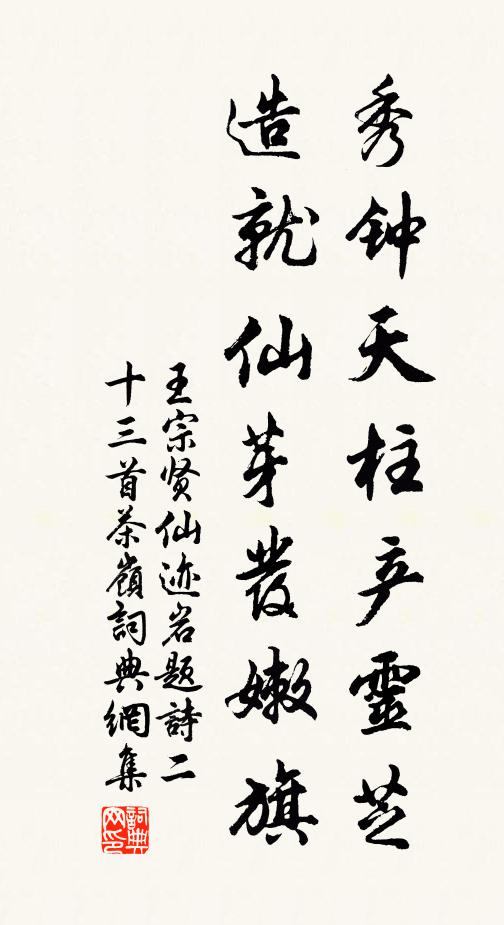 秀钟天柱产靈芝
造就仙芽發嫩旗
王宗贤仙迹岩题詩二
十三首茶嶺詞典網集
詞典网印